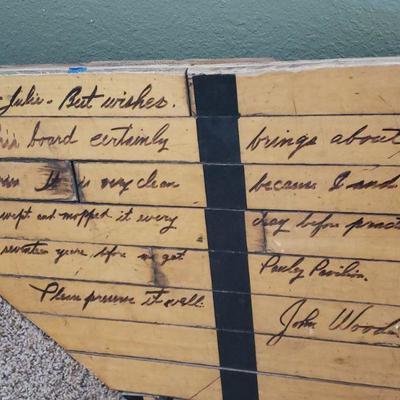 Julie - Best wishes.
this board certainly brings about
It is very clean because I and
swept and mopped it every day before pract
seventeen years, before we got Pauley Pavilion.
Please preserve it well.
John Wooden